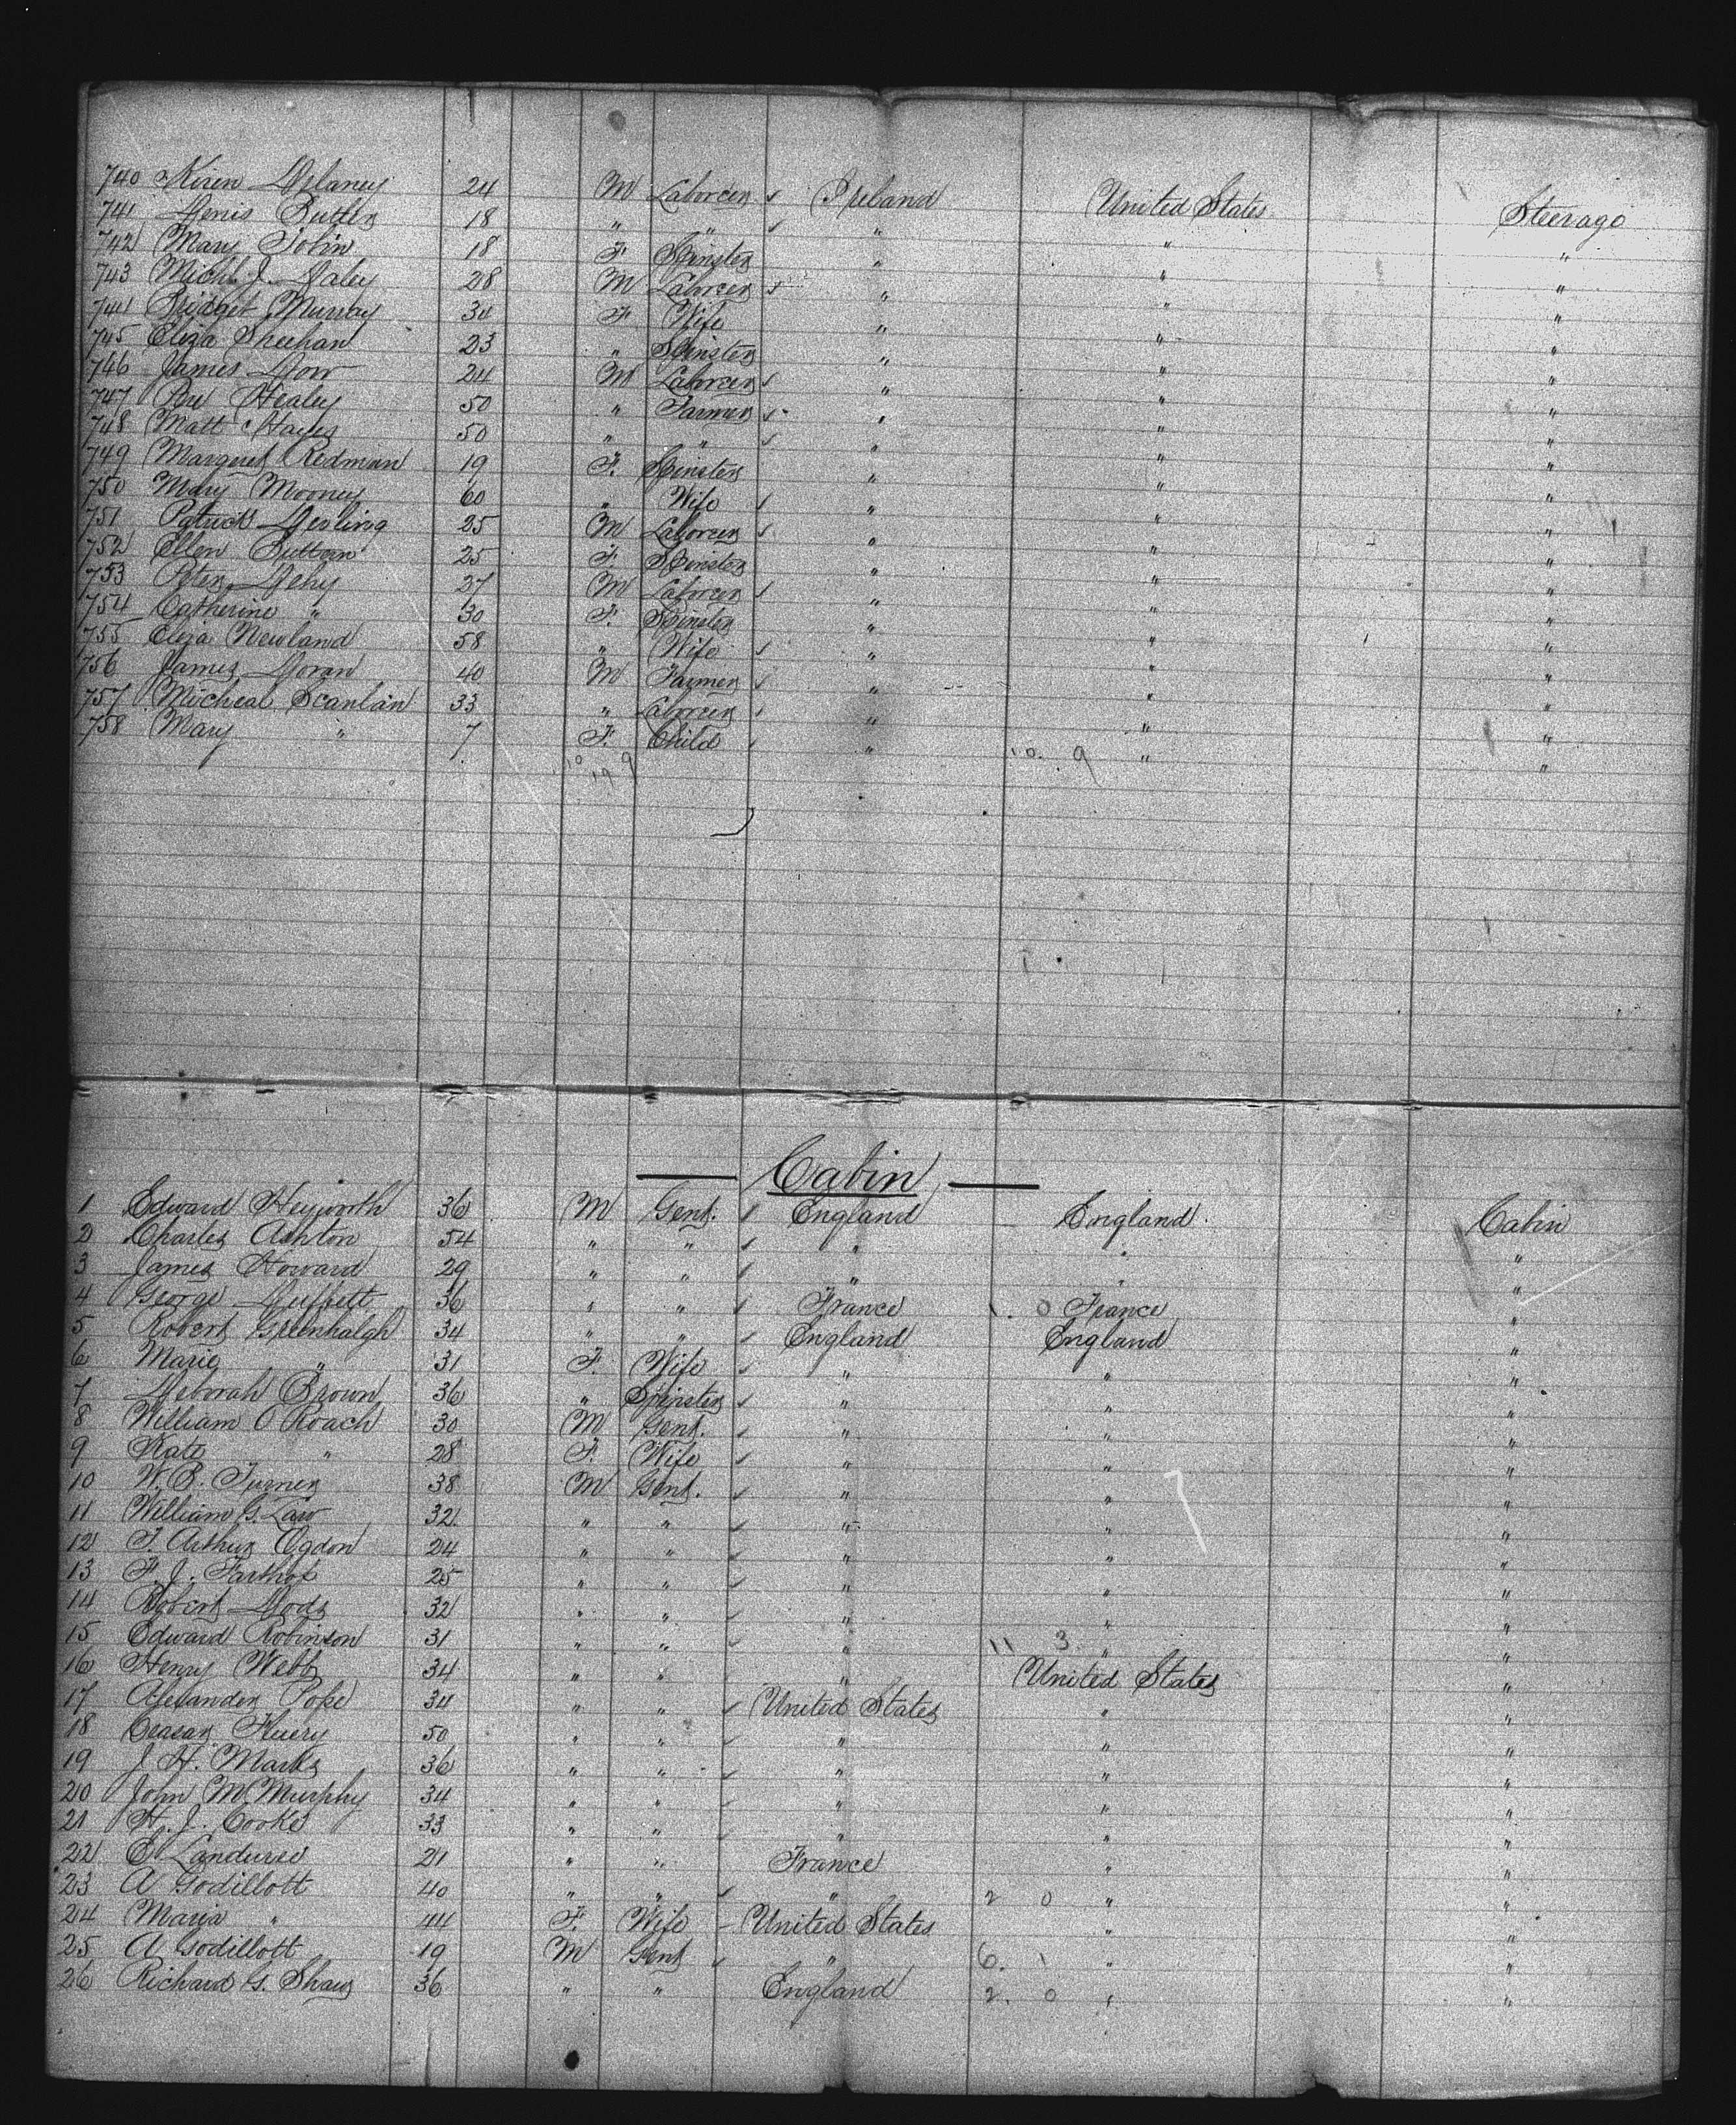 740 Kiren Delaney 24 M Laborer Ireland United States Steerage
741 Denis Butler 18 " " " " "
742 Mary Tobin 18 F Spinster " " "
743 Michl. J. Daley 28 M Laborer " " "
744 Bridget Murray 34 F Wife " " "
745 Eliza Sheehan 23 " Spinster " " "
746 James Dow 24 M Laborer " " "
747 Healey 50 " Farmer " " "
748 Matt Hayes 50 " " " " "
749 Margret Redman 19 F. Spinster " " "
750 Mary Mooney 60 " Wife " " "
751 Patrick Devling 25 M Laborer " " "
752 Ellen 25 F. Spinster " " "
753 Peter Dehy 27 M Laborer " " "
754 Catherine " 30 F. Spinster " " "
755 Eliza Newland 58 " Wife " " "
756 James Doran 40 M Farmer " " "
757 Micheal Scanlan 33 " Laborer " " "
758 Mary " 7 F. Child " " "
10 19 9 10. 9
Cabin
1 Edward Heyworth 36 M Gent. England England. Cabin
2 Charles Ashton 54 " " " " "
3 James Howard 29 " " " " "
4 George 36 " " France 1. 0 France "
5 Robert Greenhalgh 34 " " England England "
6 Marie " 31 F. Wife " " "
7 Deborah Brown 36 " Spinster " " "
8 William O Roach 30 M Gent. " " "
9 Kate " 28 F. Wife " " "
10 W. B. Turner 38 M Gent. " " "
11 William G. Law 32 " " " " "
12 T. Arthur Ogdon 24 " " " " "
13 F. J. 25 " " " " "
14 Robert Dods 32 " " " " "
15 Edward Robinson 31 " " " 11 3 " "
16 Henry Webb 34 " " " United States "
17 Alexander Pope 34 " " United States " "
18 Ceasar Fluery 50 " " " " "
19 J. H. Marks 36 " " " " "
20 John M. Murphy 34 " " " " "
21 H. J. Cooke 33 " " " " "
22 E 21 " " France " "
23 A Godillott 40 " " " 2 0 " "
24 Maria " 44 F. Wife United States " "
25 A Godillott 19 M Gent " 6. 1 " "
26 Richard G. Shaw 36 " " England 2. 0 " "